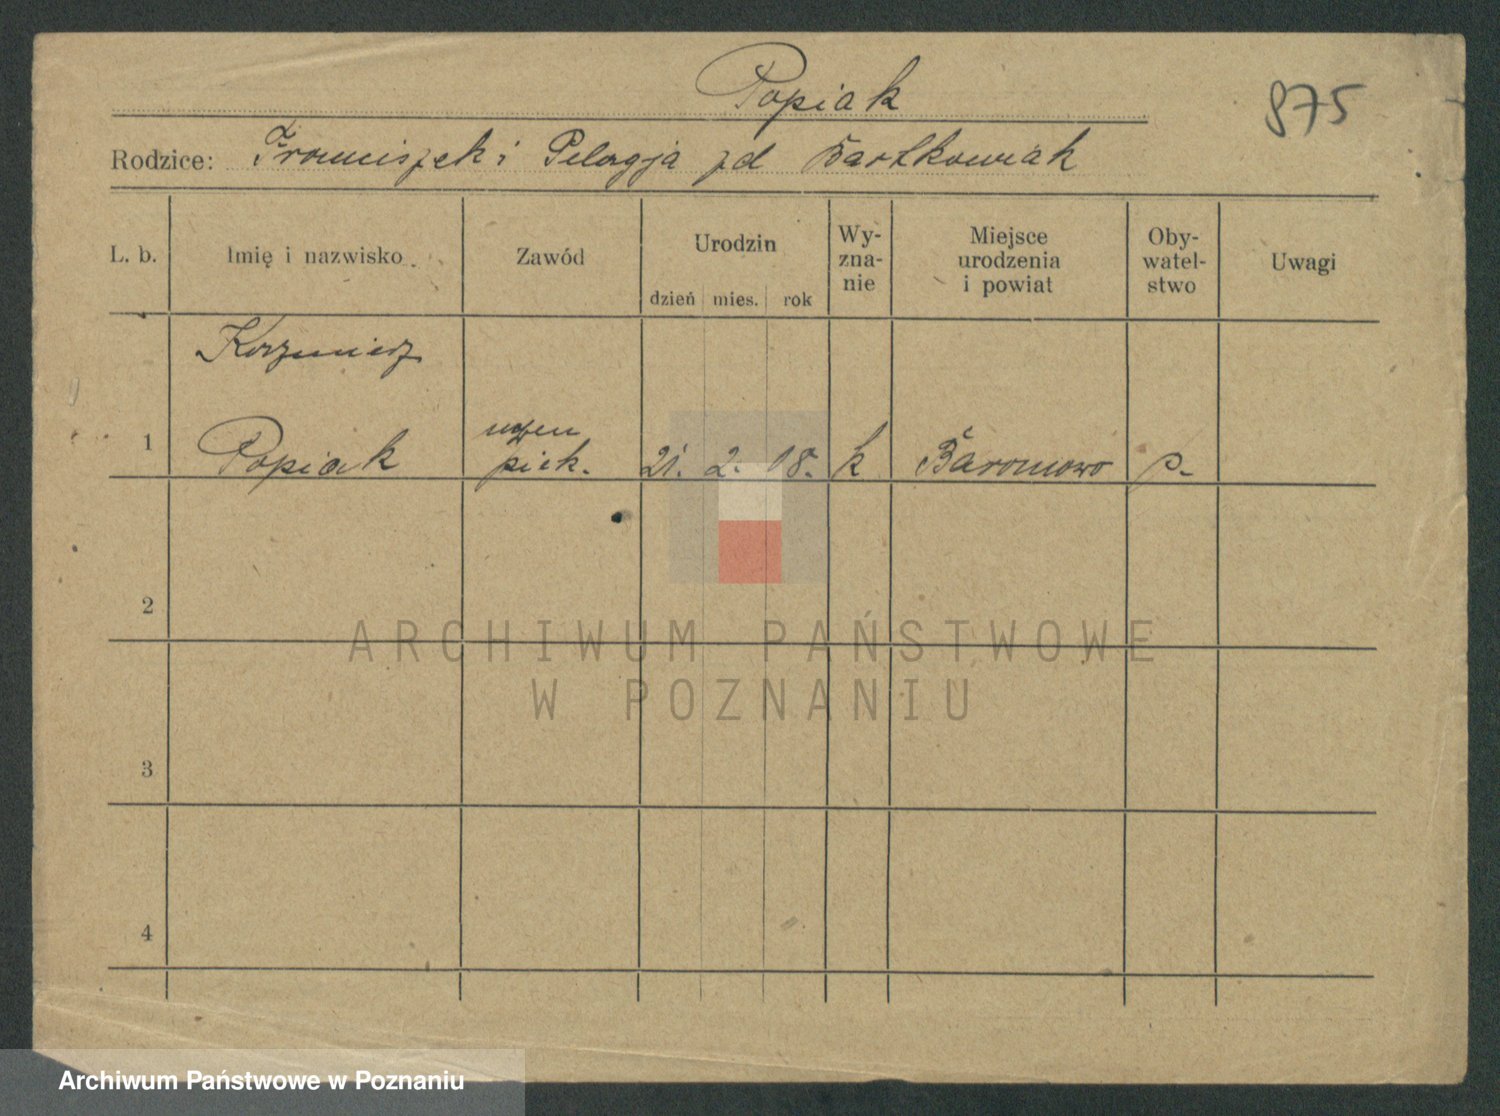 Popiak
875
Rodzice: Franciszek i Pelagja zd Bartkowiak
L. b.
Imię i nazwisko
Zawód
Urodzin
dzień mies. rok
Wy-
zna-
nie
Miejsce
urodzenia
i powiat
Oby-
watel-
stwo
Uwagi
Kazimierz
1 Popiak
uczen
piek. 21. 2. 08. k Baronowo p.
2
3
4
ARCHIWUM PAŃSTWOWE
W POZNANIU
Archiwum Państwowe w Poznaniu